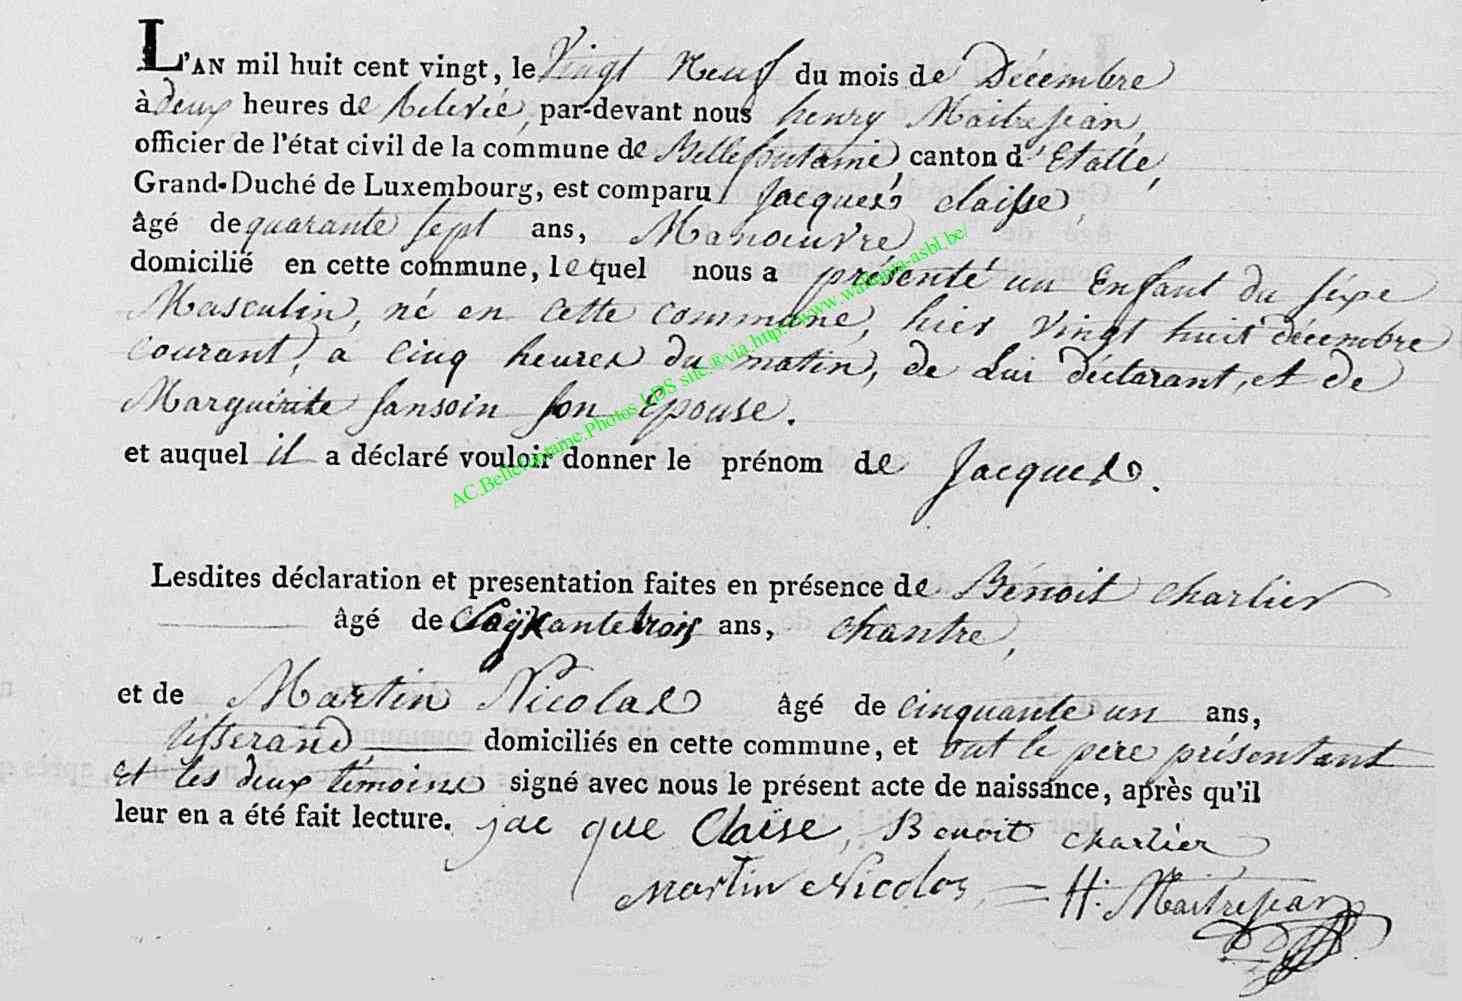 L'AN mil huit cent vingt, le Vingt Neuf du mois de Décembre
à deux heures de Relevée, par-devant nous henry Maitrejean,
officier de l'état civil de la commune de Bellefontaine, canton d'Etalle,
Grand-Duché de Luxembourg, est comparu Jacques claisse,
âgé de quarante sept ans, Manoeuvre
domicilié en cette commune, lequel nous a présenté un Enfant du sexe
Masculin, né en cette commune, hier vingt huit décembre
courant, a cinq heures du matin, de Lui déclarant, et de
Marguerite sansoin son Epouse.
et auquel il a déclaré vouloir donner le prénom de Jacques.
AC.Bellefontaine.Photos LDS site.®via.http://www.wamabi-asbl.be/
Lesdites déclaration et presentation faites en présence de Benoit charlier
âgé de soixante trois ans, chantre,
et de Martin Nicolas âgé de cinquante un ans,
tisserand domiciliés en cette commune, et ont le pere présentant
et les deux témoins signé avec nous le présent acte de naissance, après qu'il
leur en a été fait lecture. jac que Claise, Benoit charlier
Martin Nicolas H. Maitrejean